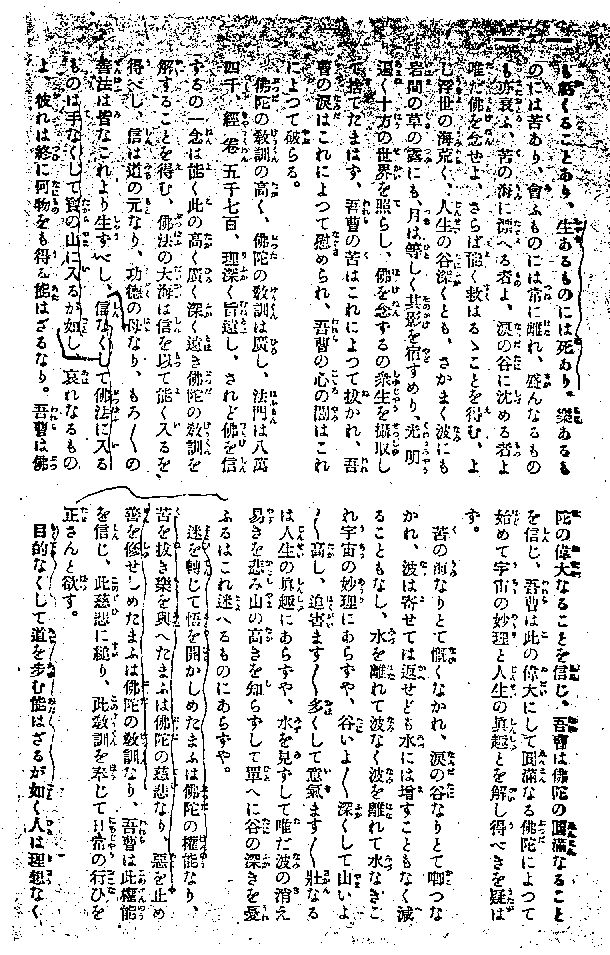 も朽くることあり、生あるものには死あり。樂あるも
のには苦あり、會ふものには常に離れ、盛んなるもの
も亦衰ふ、苦の海に漂へる者よ、淚の谷に沈める者よ
唯だ佛を念せよ、さらば能く救はるゝことを得む、よ
し浮世の海荒く、人生の谷深くとも、さかまく波にも
岩間の草の露にも、月は等しく其影を宿すめり、光明
遍く十方の世界を照らし、佛を念ずるの衆生を攝取し
て捨てたまはず、吾曹の苦はこれによつて拔かれ、吾
曹の淚はこれによつて慰められ、吾曹の心の闇はこれ
によつて破らる。
佛陀の敎訓の高く、佛陀の敎訓は廣し、法門は八萬
四千、經卷五千七百、理深く旨遠し、されど佛を信
ずるの一念は能く此の高く廣く深く遠き佛陀の敎訓を
解することを得む、佛法の大海は信を以て能く入るを
得べし、信は道の元なり、功德の母なり、もろ〱の
善法は皆なこれより生ずべし、信なくして佛法に入る
ものは手なくして寶の山に入るが如し、哀れなるもの
よ、彼れは終に何物をも得る能はざるなり。吾曹は佛
陀の偉大なることを信じ、吾曹は佛陀の圓滿なること
を信じ、吾曹は此の偉大にして圓滿なる佛陀によつて
始めて宇宙の妙理と人生の眞趣とを解し得べきを疑は
ず。
苦の海なりとて慨くなかれ、淚の谷なりとて啣つな
かれ、波は寄せては返せども水には增すこともなく減
ることもなし、水を離れて波なく波を離れて水なきこ
れ宇宙の妙理にあらずや、谷いよ〱深くして山いよ
〱高し、迫害ます〱多くして意氣ます〱壯なる
は人生の眞趣にあらずや、水を見ずして唯だ波の消え
易きを悲み山の高きを知らずして單へに谷の深きを憂
ふるはこれ迷へるものにあらずや。
迷を轉じて悟を開かしめたまふは佛陀の權能なり、
苦を拔き樂を與へたまふは佛陀の慈悲なり、惡を止め
善を修せしめたまふは佛陀の敎訓なり、吾曹は此權能
を信じ、此慈悲に縋り、此敎訓を奉じて日常の行ひを
正さんと欲す。
目的なくして道を步む能はざるが如く人は理想なく